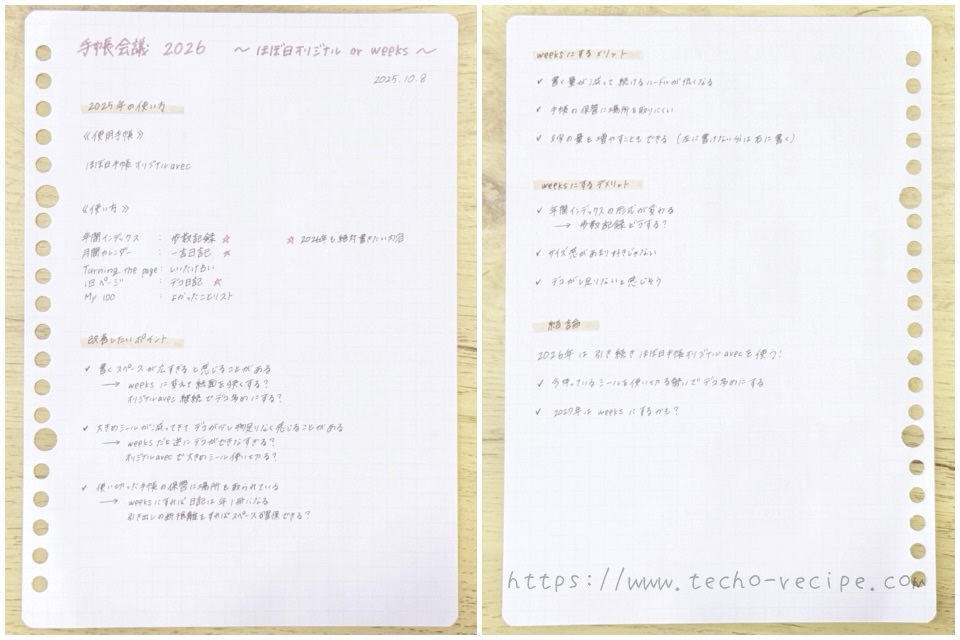 手帳会議 2026 〜ほぼ日オリジナル or weeks〜
2025.10.8
2025年の使い方
《使用手帳》
ほぼ日手帳オリジナルavec
《使い方》
年間インデックス : 歩数記録 ☆ ☆ 2026年も絶対書きたい内容
月間カレンダー : 一言日記 ☆
Turning the page : しいたけ占い
1日ページ : デコ日記 ☆
My 100 : よかったことリスト
改善したいポイント
✓ 書くスペースが広すぎると感じることがある
→ weeksに変えて紙面を狭くする?
オリジナルavec継続でデコ多めにする?
✓ 大きめシールが減ってきてデコが少し物足りなく感じることがある
→ weeksだと逆にデコができなすぎる?
オリジナルavecで大きめシール使いきる?
✓ 使い切った手帳の保管に場所を取られている
→ weeksにすれば日記は年1冊になる
引き出しの断捨離をすればスペース確保できる?
weeksにするメリット
✓ 書く量が減って続けるハードルが低くなる
✓ 手帳の保管に場所を取りにくい
✓ 日記の量を増やすこともできる (左に書けない分は右に書く)
weeksにするデメリット
✓ 年間インデックスの形式が変わる
→ 歩数記録どうする?
✓ サイズ感があまり好きじゃない
✓ デコがし足りないと感じそう
結論
2026年は引き続きほぼ日手帳オリジナルavecを使う!
✓ 今持っているシールを使いきる勢いでデコ多めにする
✓ 2027年はweeksにするかも?
https://www.techo-recipe.com